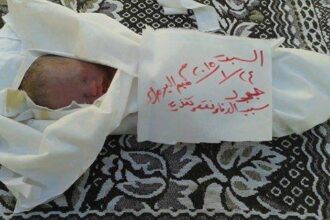 السبت ٢٤/١/٢٠١٥ م
مخيم اليرموك
سبب الوفاة نقص تغذية